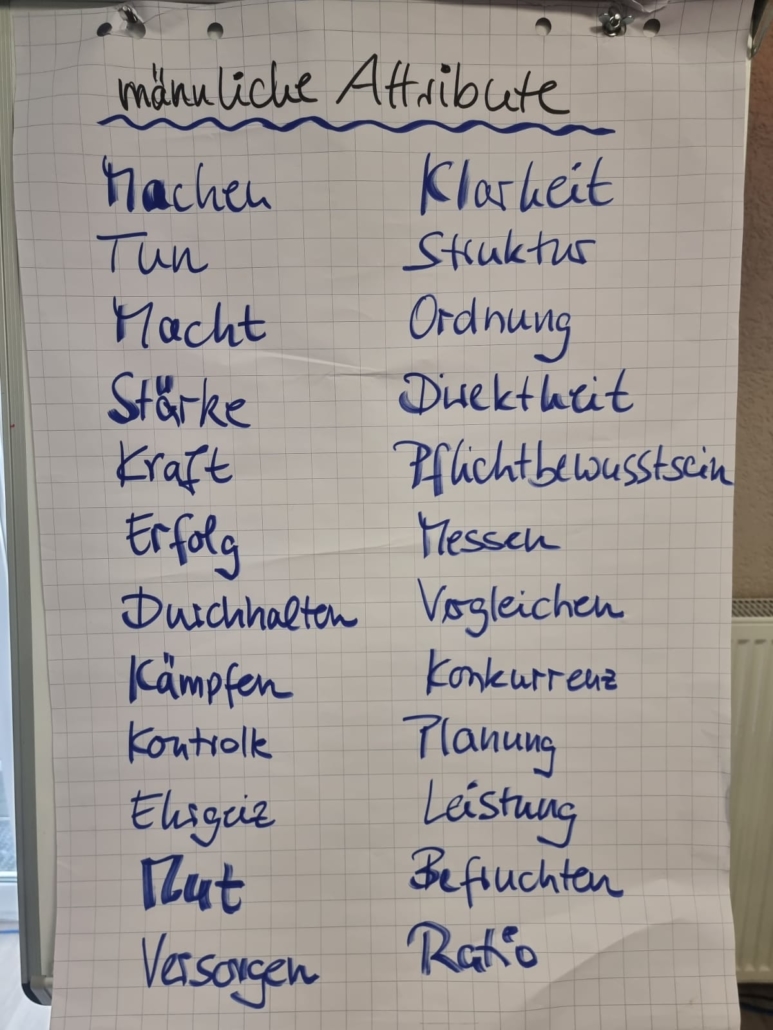 männliche Attribute
Machen
Tun
Macht
Stärke
Kraft
Erfolg
Durchhalten
Kämpfen
Kontrolle
Ehrgeiz
Mut
Versorgen
Klarheit
Struktur
Ordnung
Direktheit
Pflichtbewusstsein
Messen
Vergleichen
Konkurrenz
Planung
Leistung
Befruchten
Ratio